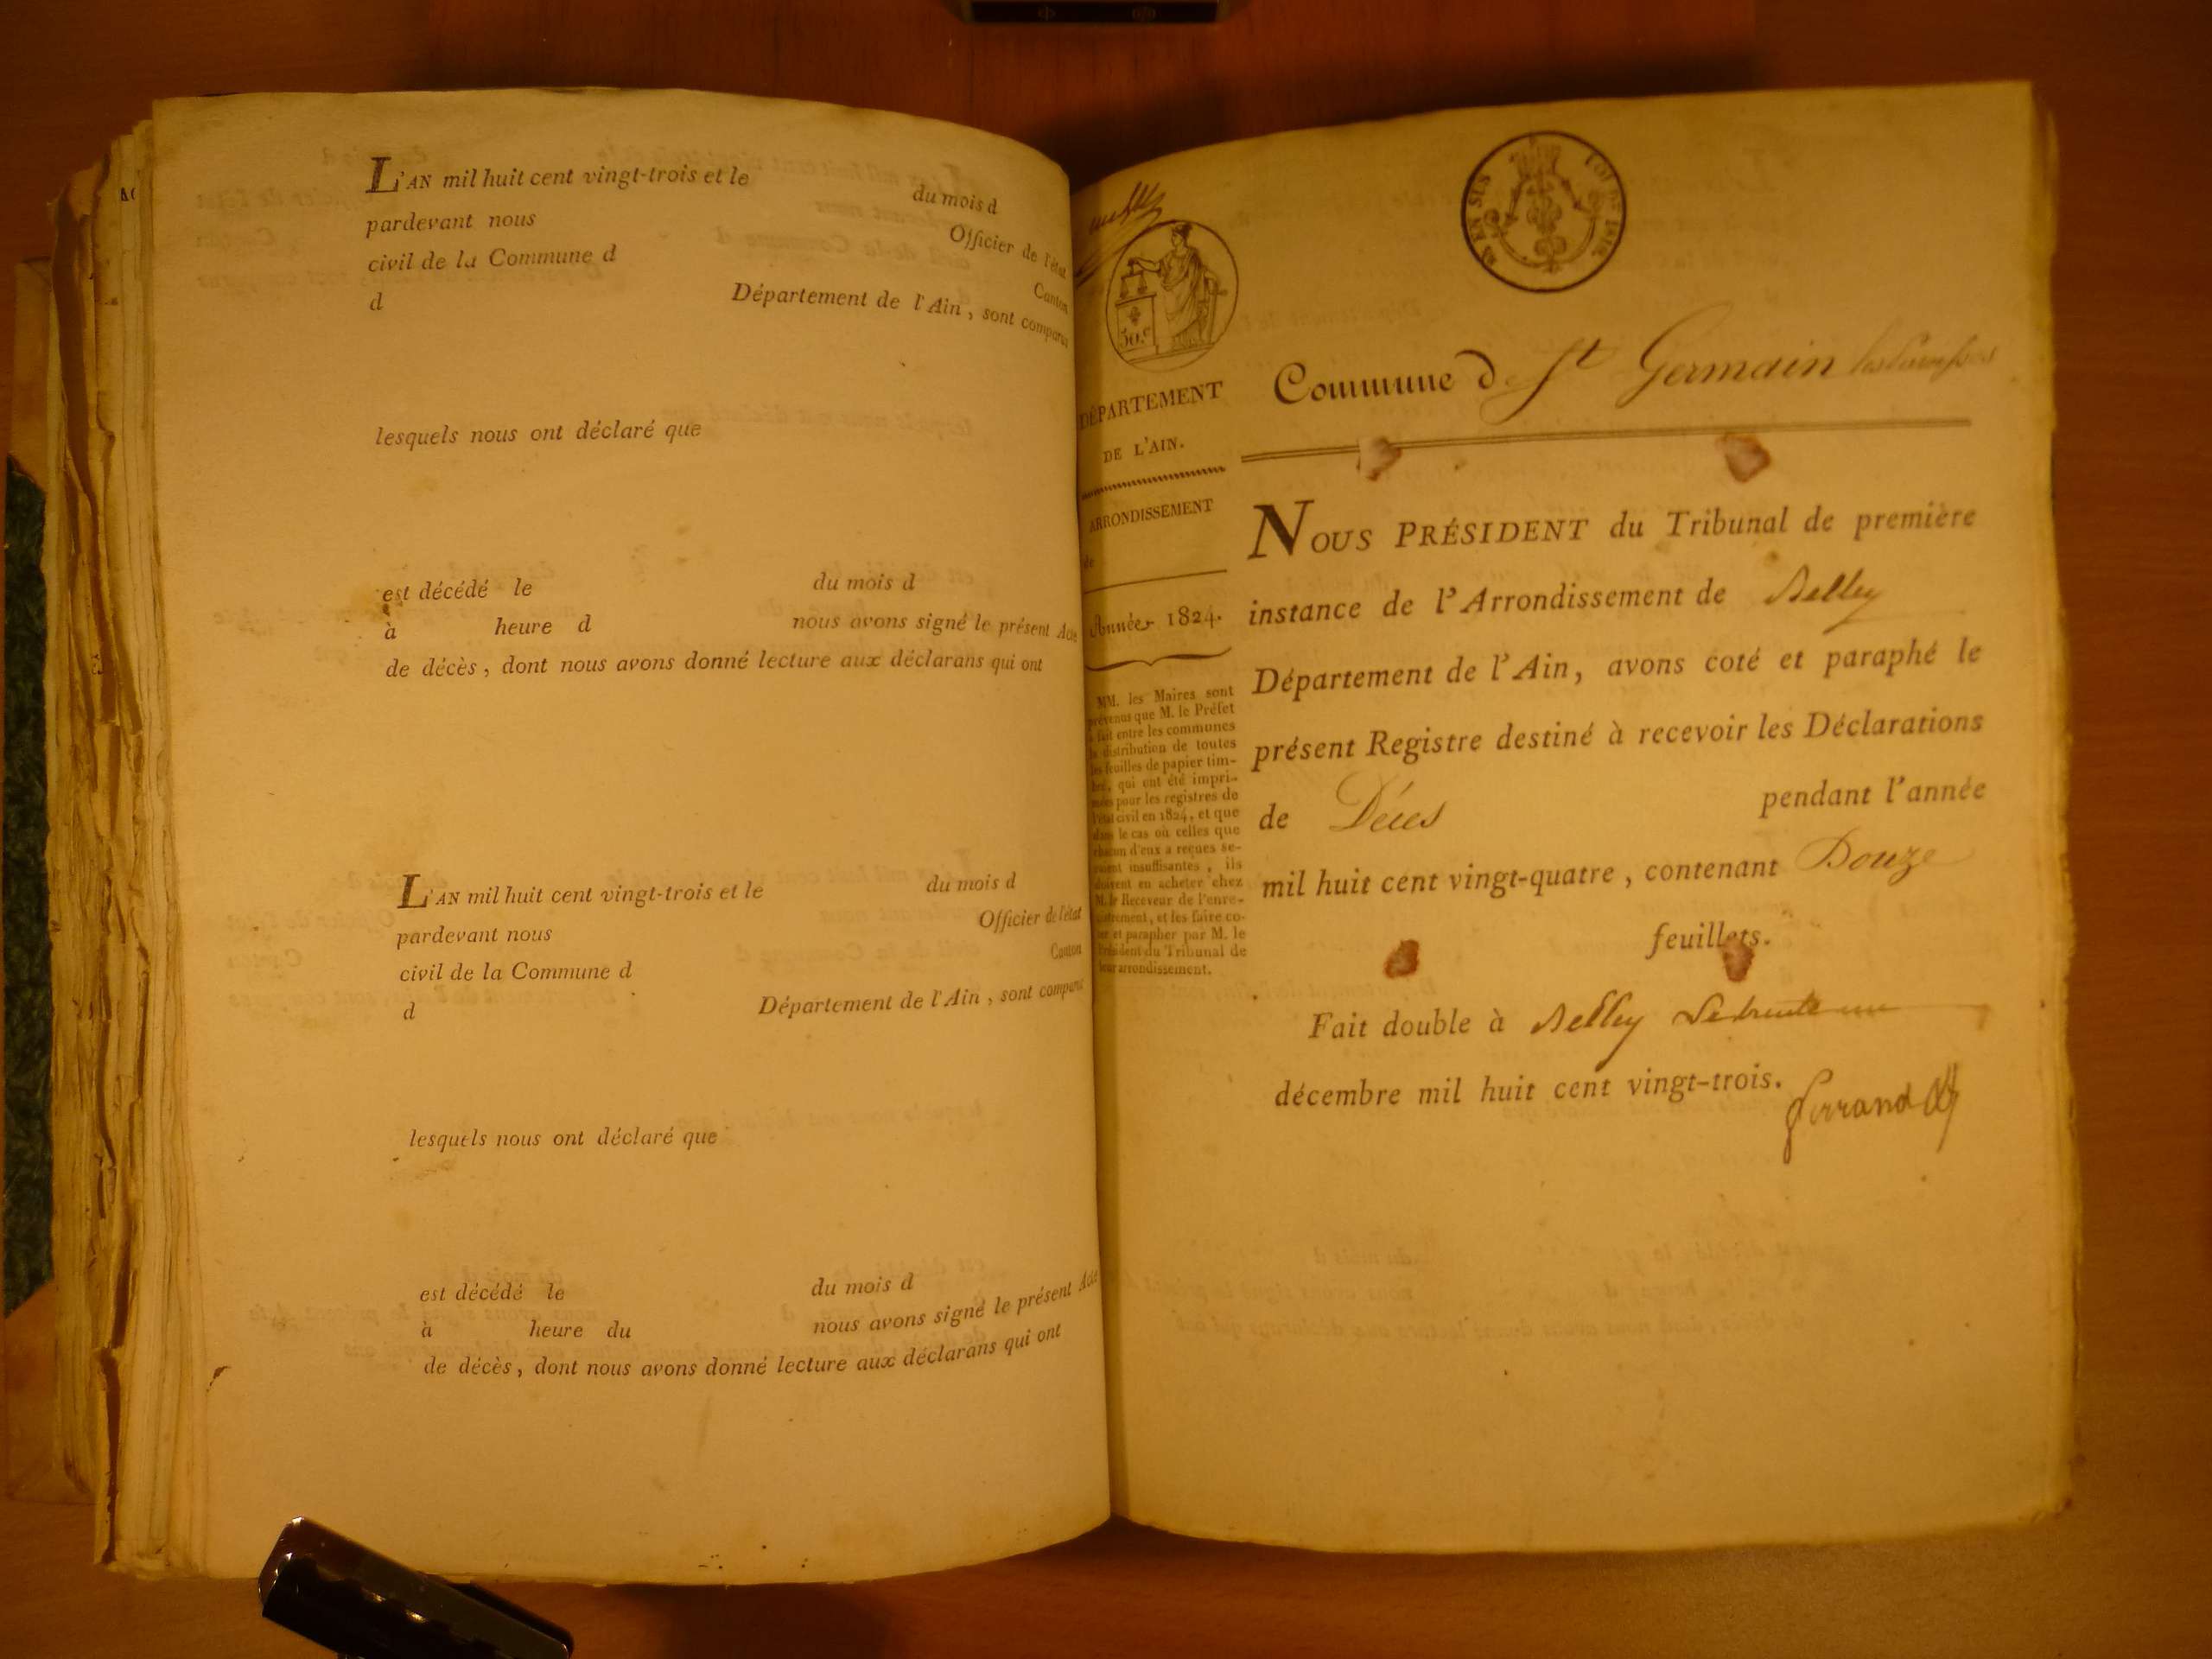 L'AN mil huit cent vingt-trois et le du mois d
pardevant nous Officier de l'état
civil de la Commune d Canton
d Département de l'Ain, sont comparus
lesquels nous ont déclaré que
est décédé le du mois d
à heure d nous avons signé le présent Acte
de décès, dont nous avons donné lecture aux déclarans qui ont
L'AN mil huit cent vingt-trois et le du mois d
pardevant nous Officier de l'état
civil de la Commune d Canton
d Département de l'Ain, sont comparus
lesquels nous ont déclaré que
est décédé le du mois d
à heure du nous avons signé le présent Acte
de décès, dont nous avons donné lecture aux déclarans qui ont
50.c
DÉPARTEMENT
DE L'AIN.
ARRONDISSEMENT
de
Année 1824.
MM. les Maires sont
prévenus que M. le Préfet
a fait entre les communes
la distribution de toutes
les feuilles de papier tim-
bré, qui ont été impri-
mées pour les registres de
l'état civil en 1824, et que
dans le cas où celles que
chacun d'eux a reçues se-
raient insuffisantes, ils
doivent en acheter chez
M. le Receveur de l'enre-
gistrement, et les faire co-
ter et parapher par M. le
Président du Tribunal de
leur arrondissement.
EN SUS LOI DE 1816
Commune de St Germain les Paroisses
NOUS PRÉSIDENT du Tribunal de première
instance de l'Arrondissement de Belley
Département de l'Ain, avons coté et paraphé le
présent Registre destiné à recevoir les Déclarations
de Décès pendant l'année
mil huit cent vingt-quatre, contenant Douze
feuillets.
Fait double à Belley le trente un
décembre mil huit cent vingt-trois.